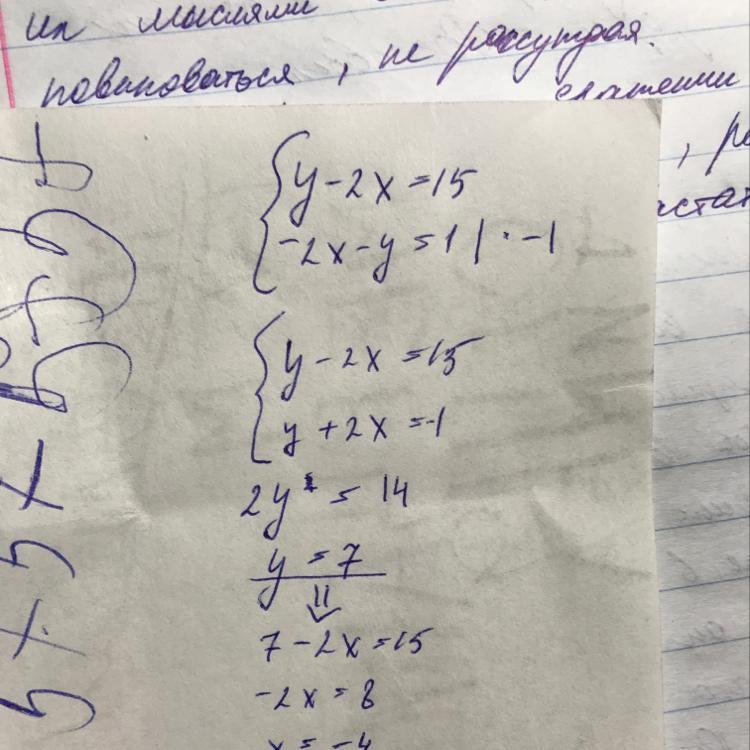 их мыслями
повиноваться, не рассуждая.
, ра
y-2x=15
-2x-y=1 | · -1
y-2x=15
y+2x=-1
2y = 14
y = 7
⇓
7-2x=15
-2x=8
x=-4